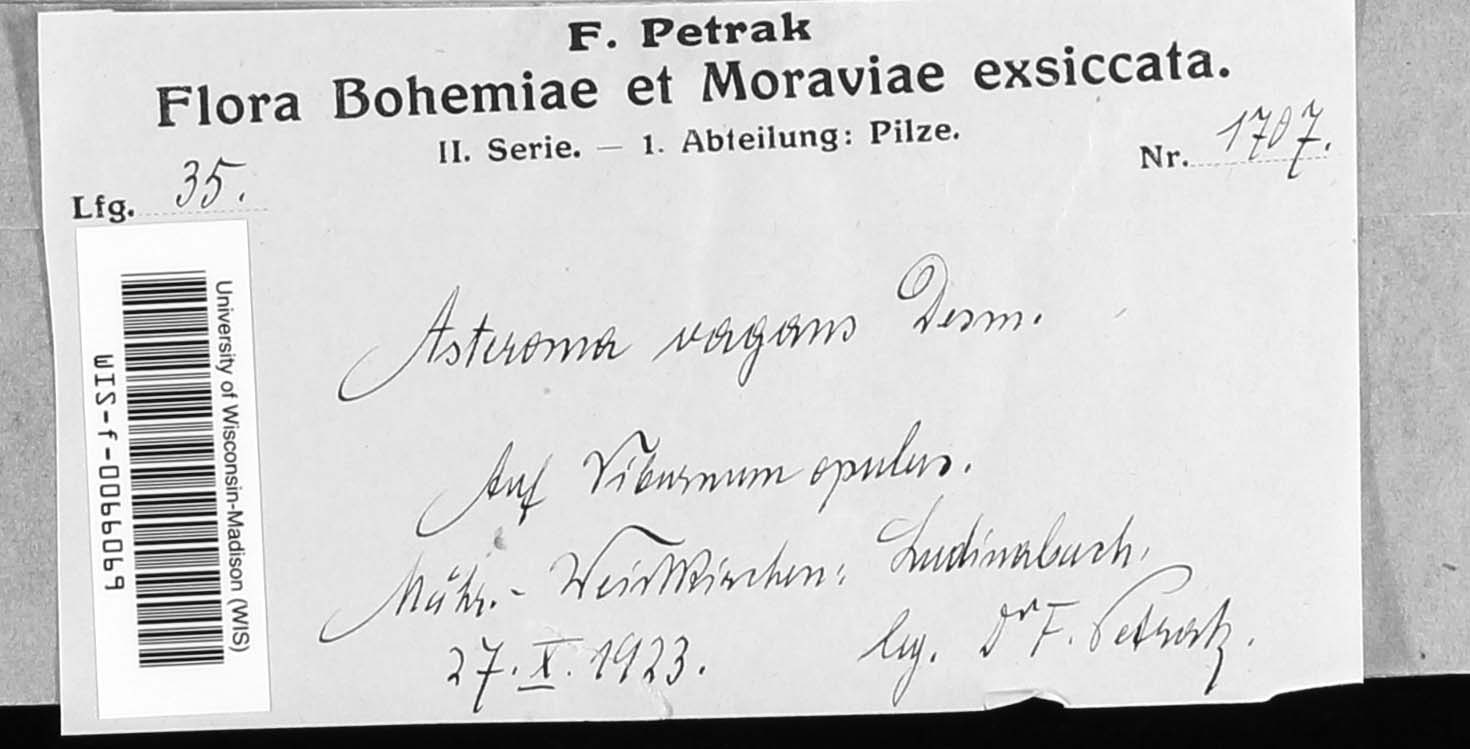 F. Petrak
Flora Bohemiae et Moraviae exsiccata.
II. Serie. — 1. Abteilung: Pilze.
Lfg. 35.
Nr. 1707.
University of Wisconsin-Madison (WIS)
WIS-f-0066069
Asteroma vagans Desm.
Auf Viburnum opulus.
Mähr.-Weisskirchen: Ludinabach.
27. X. 1923.
leg. Dr F. Petrak.